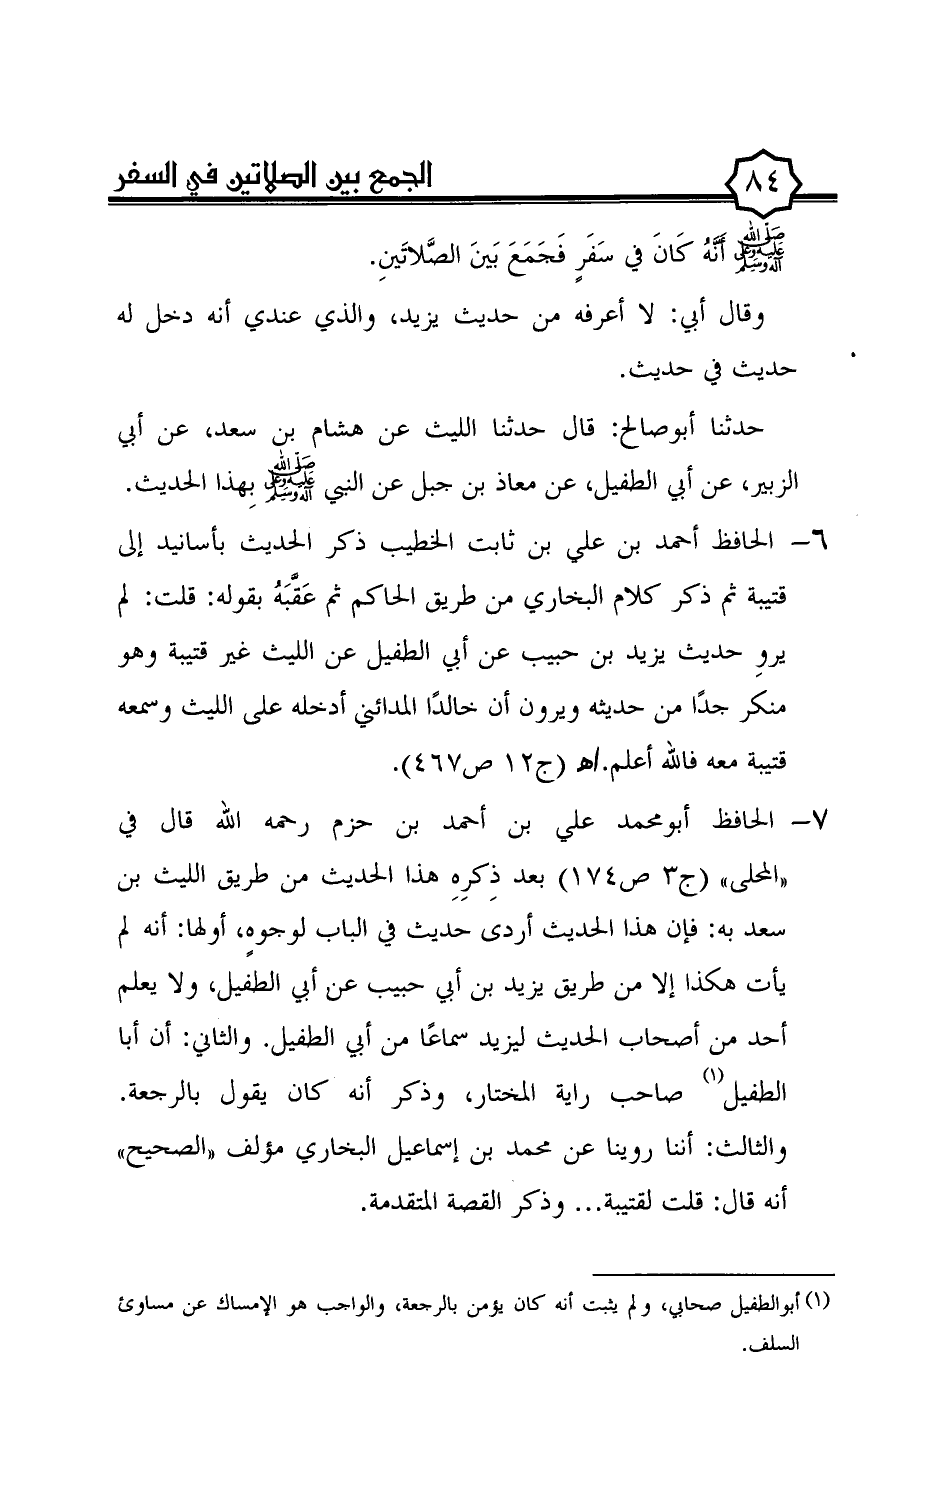 ٨٤ الجمع بين الصلاتين في السفر
ﷺ أَنَّهُ كَانَ في سَفَرٍ فَجَمَعَ بَينَ الصَّلاتَينِ.
وقال أبي: لا أعرفه من حديث يزيد، والذي عندي أنه دخل له
حديث في حديث.
حدثنا أبوصالح: قال حدثنا الليث عن هشام بن سعد، عن أبي
الزبير، عن أبي الطفيل، عن معاذ بن جبل عن النبي ﷺ بِهذا الحديث.
٦- الحافظ أحمد بن علي بن ثابت الخطيب ذكر الحديث بأسانيد إلى
قتيبة ثم ذكر كلام البخاري من طريق الحاكم ثم عَقَّبَهُ بقوله: قلت: لم
يروِ حديث يزيد بن حبيب عن أبي الطفيل عن الليث غير قتيبة وهو
منكر جدًا من حديثه ويرون أن خالدًا المدائني أدخله على الليث وسمعه
قتيبة معه فالله أعلم./ﻫ (ج١٢ ص٤٦٧).
٧- الحافظ أبومحمد علي بن أحمد بن حزم رحمه الله قال في
«المحلى» (ج٣ ص١٧٤) بعد ذِكرِهِ هذا الحديث من طريق الليث بن
سعد به: فإن هذا الحديث أردى حديث في الباب لوجوهٍ، أولها: أنه لم
يأت هكذا إلا من طريق يزيد بن أبي حبيب عن أبي الطفيل، ولا يعلم
أحد من أصحاب الحديث ليزيد سماعًا من أبي الطفيل. والثاني: أن أبا
الطفيل(١) صاحب راية المختار، وذكر أنه كان يقول بالرجعة.
والثالث: أننا روينا عن محمد بن إسماعيل البخاري مؤلف «الصحيح»
أنه قال: قلت لقتيبة... وذكر القصة المتقدمة.
(١) أبوالطفيل صحابي، ولم يثبت أنه كان يؤمن بالرجعة، والواجب هو الإمساك عن مساوئ
السلف.